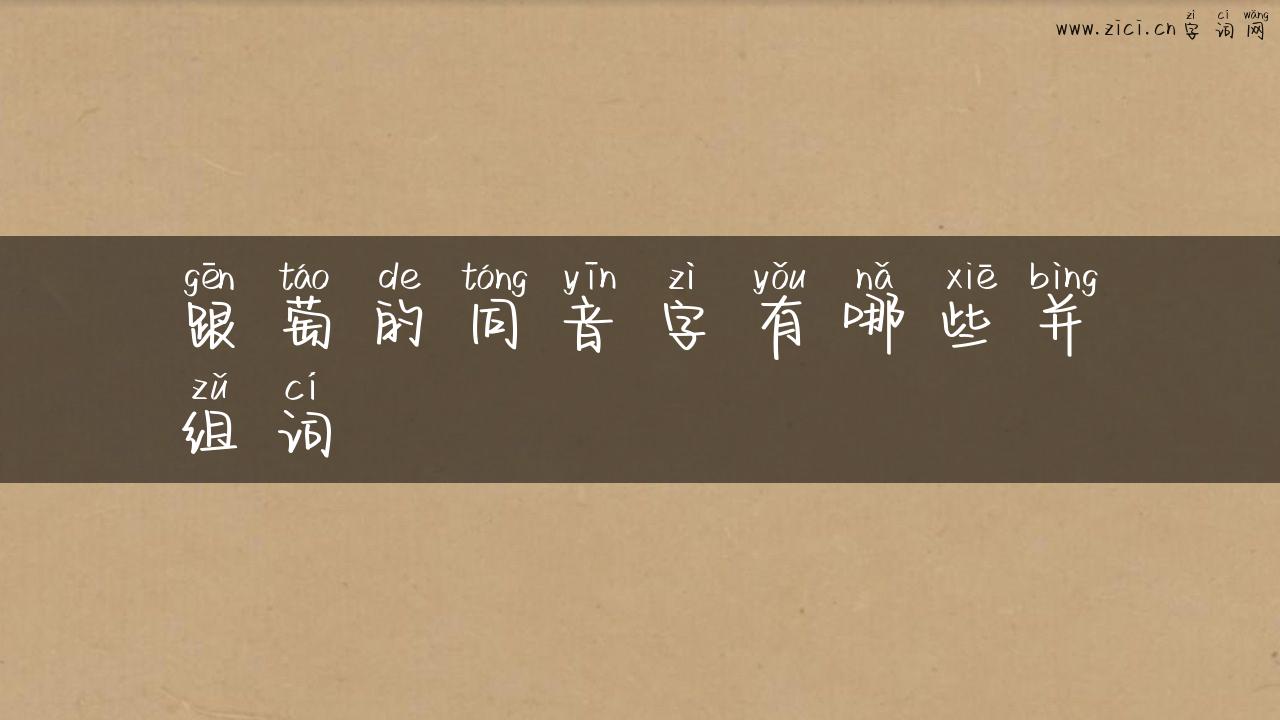 zì cí wǎng
www.zici.cn 字词网
gēn táo de tóng yīn zì yǒu nǎ xiē bìng
跟萄的同音字有哪些并
zǔ cí
组词